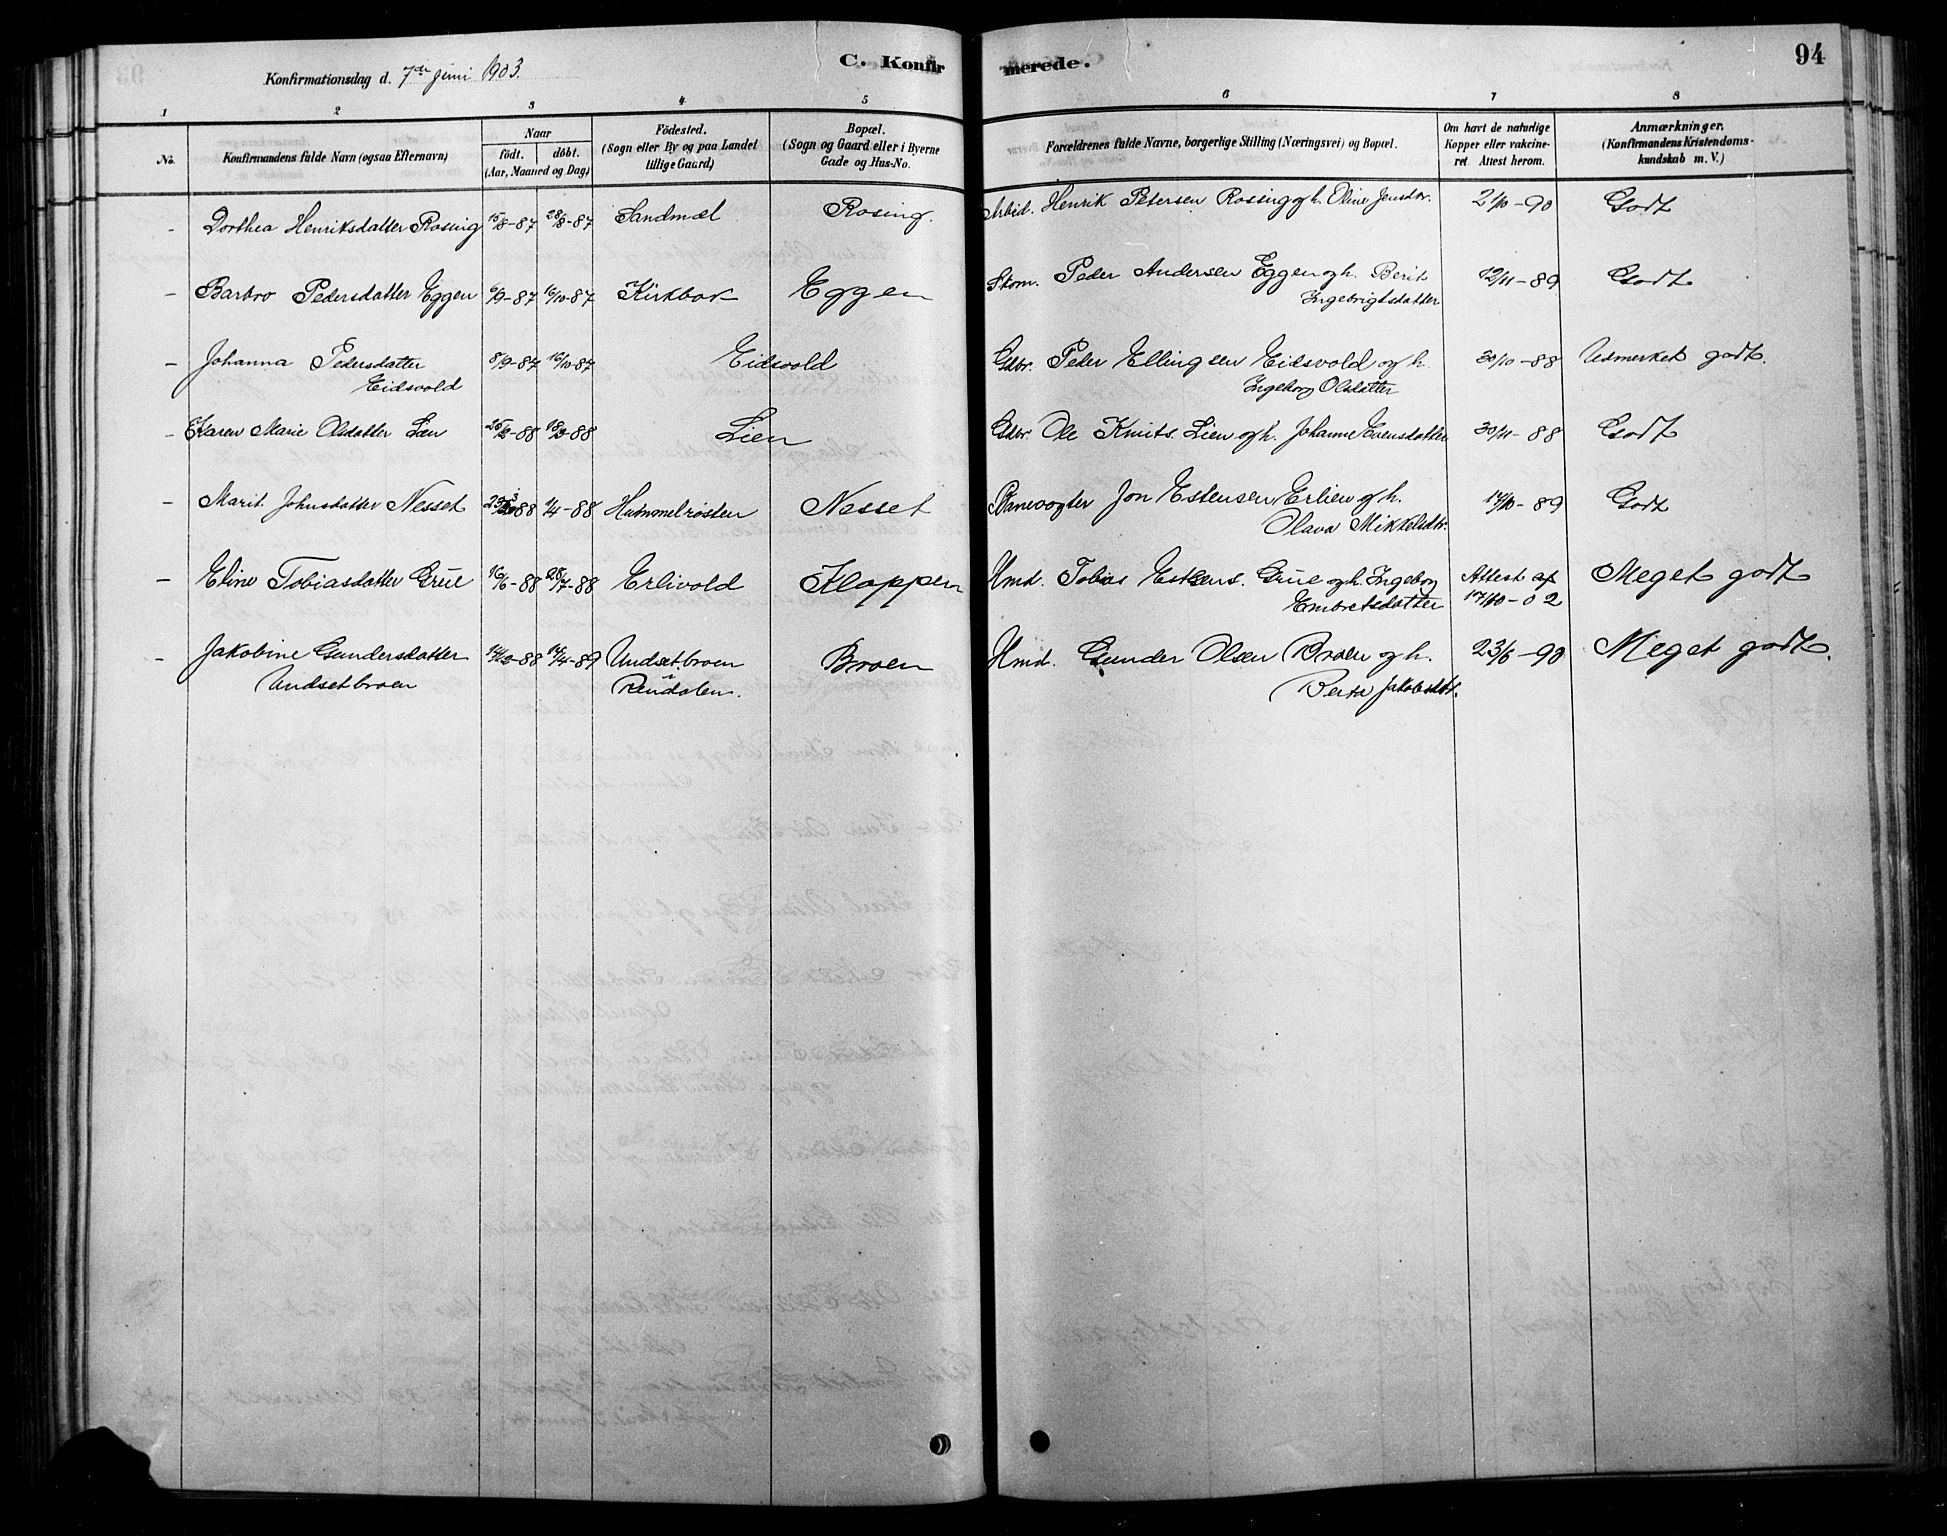 Konfirmationsdag d. 7de juni 1903.
C. Konfirmerede.
94
1 2 3 4 5 6 7 8
No. Konfirmandens fulde Navn (ogsaa Efternavn) Naar födt. döbt. (Aar, Maaned og Dag) Födested. (Sogn eller By og paa Landet tillige Gaard) Bopæl. (Sogn og Gaard eller i Byerne Gade og Hus-No. Forældrenes fulde Navne, borgerlige Stilling (Næringsvei) og Bopæl. Om havt de naturlige Kopper eller vakcineret. Attest herom. Anmærkninger. (Konfirmandens Kristendomskundskab m. V.)
- Dorthea Henriksdatter Rosing 15/8-87 28/8-87 Sandmæl Rosing. Arbid. Henrik Petersen Rosing og h. Oline Jensdtr. 2/10-90 Godt
- Barbro Pedersdatter Eggen 6/9-87 16/10-87 Kirkbak Eggen Skom. Peder Andersen Eggen og h. Berit 12/11-89 Godt
Ingebrigtsdatter
- Johanna Pedersdatter 8/9-87 16/10-87 Eidsvold Gdbr. Peder Ellingsen Eidsvold og h. 30/10-88 Udmerket godt.
Eidsvold Ingeborg Olsdatter
- Karen Marie Olsdatter Lien 25/2-88 18/3-88 Lien Gdbr. Ole Knuts. Lien og h. Johanne Evensdatter 30/11-88 Godt
- Marit Johnsdatter Nesset 88 1/4-88 Hummelrösten Nesset Banevogter Jon Estensen Erlien og h. 17/10-89 Godt
Olava Mikkelsdtr.
- Eline Tobiasdatter Grue 16/6-88 28/7-88 Erlivold Kloppen Hmd. Tobias Estens. Grue og h. Ingeborg Attest af Meget godt
Embretsdatter 17/10-02
- Jakobine Gundersdatter 88 89 Undsetbroen Broen Hmd. Gunder Olsen Broen og h. 23/6-90 Meget godt.
Undsetbroen Rendalen. Berta Jakobsdtr.